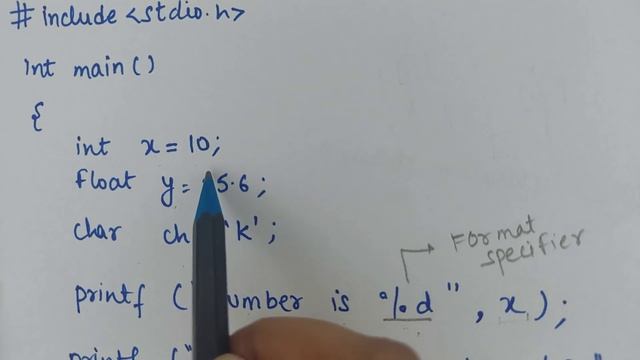 #include <stdio.h>
int main()
{
int x = 10;
float y = 5.6;
char ch 'k';
Format specifier
printf ("umber is %d", x);
printf ("